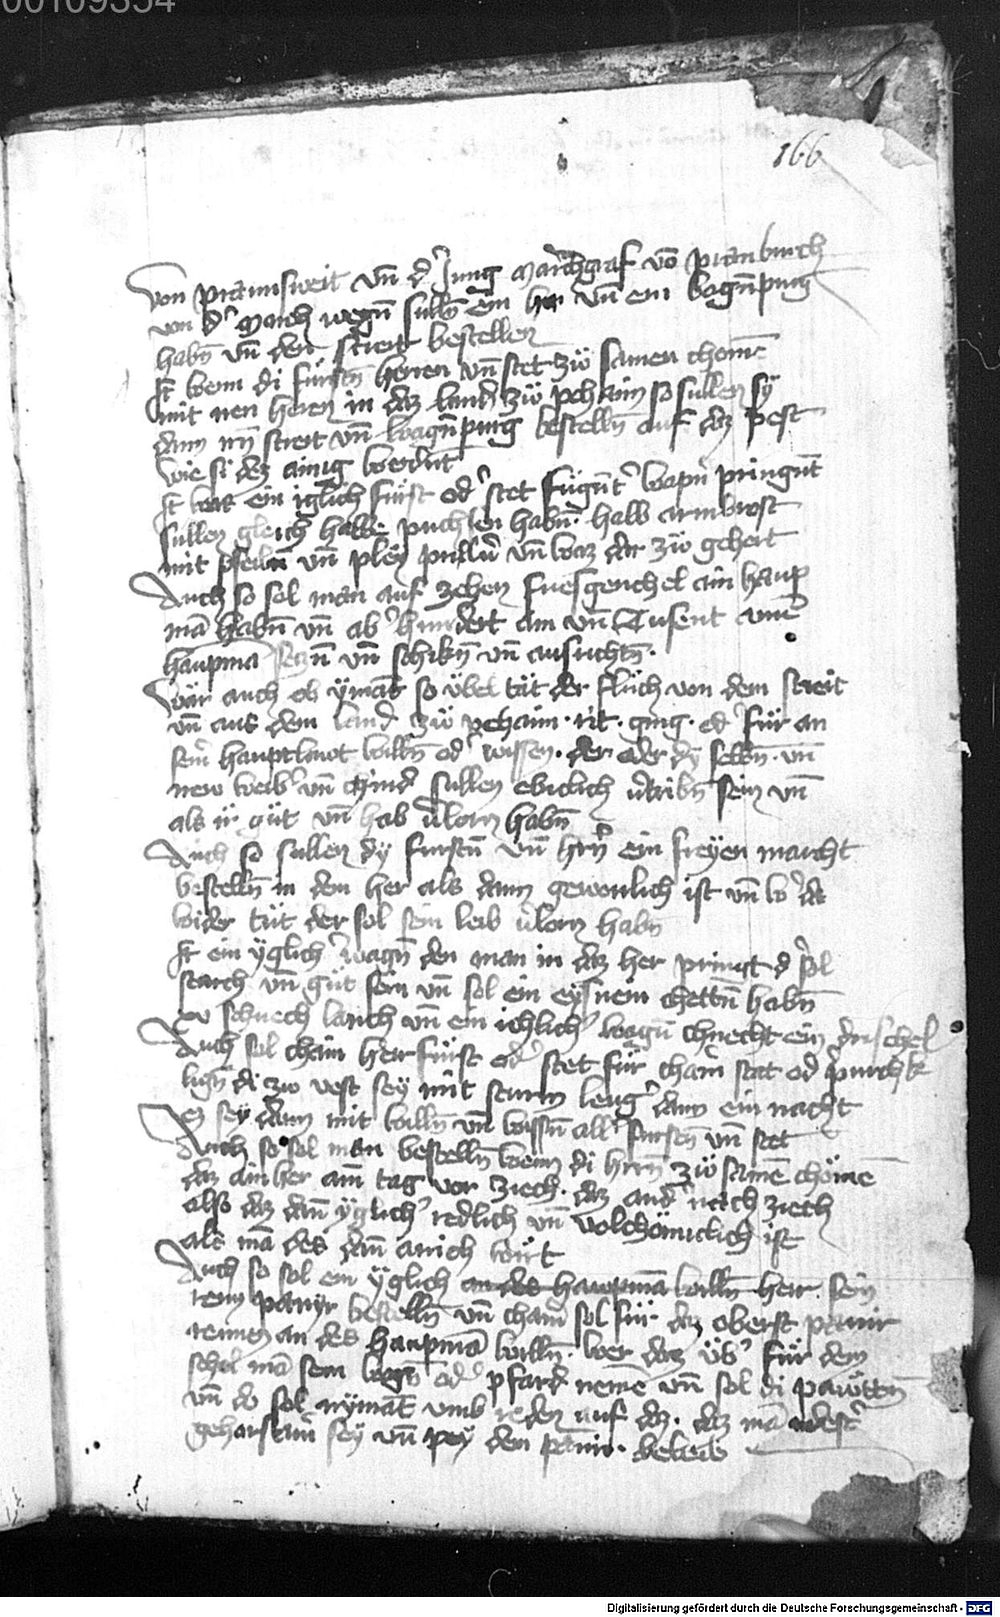 00109354
166
von praunsweit vn̄ d' Jung Marchgraf vō pranburch
von d' March wegn̄ sullē ein her vn̄ ein wogn̄purg
habn̄ vn̄ den streit bestellen
It wenn di fürstn̄ herren vn̄ stet zü samen chomē
mit iren heren in daz land zü pehaim so sullen sÿ
dann irn̄ streit vn̄ wagn̄purg bestelln̄ auf daz pest
wie si dez ainig werdnt
It was ein iglich fürst od' stet füzn̄t' wapn̄ pringnt
sullen gleich halbe puchsen habn̄ halb armbrost
mit pfeiln̄ vn̄ pleÿ pulluer vn̄ waz dar zü gehort
Auch so sol man auf zehen fuesgenchel ain haup
mā habn̄ vn̄ ab' hundert ain vn̄ Tusent ainē
haupmā seczn̄ vn̄ schikn̄ vn̄ ausrichtn̄.
Wär auch ob ÿmāt so übel tät der flüch von dem streit
vn̄ aus dem land zü pehaim . rit . ging . od' für an
seīn hauptlewt willn̄ od' wissen . der oder dÿ selbn̄ . vn̄
irew weib' vn̄ chind' sullen ebiclich v'tribn̄ sein vn̄
als ir güt vn̄ hab v'lorn habn̄
Auch so sullen dÿ furstn̄ vn̄ hrn̄ ein freÿen marcht
bestelln̄ in dem her als dann gewonlich ist vn̄ w' da
wider tüt der sol sein leib v'lorn habn̄
It ein ÿglich' wagn̄ den man in daz her pringt d' sol
starch vn̄ güt sein vn̄ sol ein eÿsnein chettn̄ habn̄
xv schuech lanch vn̄ ein ichlich' wagn̄ chnecht ein drischel
Auch sol chain herr fürst od' stet für chain stat od' purchk
lign̄ di zw vest sey mit sturm leng' dann ein nacht
Ez seÿ dann mit willn̄ vn̄ wissn̄ all' furstn̄ vn̄ stet
Auch so sol man bestelln̄ wenn di hrrn̄ zü samē chömē
daz ain her ain tag vor ziech . daz and' nach ziech
also daz dan̄ ÿglich' redlich vn̄ volchömiclich ist
als mā des dan̄ ainich wirt
Auch so sol ein ÿglich an des haupmā willn̄ herr sein
renn panÿr bestelln̄ vn̄ chain sol für daz oberst panir
rennen an des haupmā willn̄ . wer daz üb' für dem
schol mā sein wogn̄ od' pfard nemē vn̄ sol di pawttn̄
vn̄ do sol nÿmāt vmb reden auf daz . daz mā dest'
gehorsam' seÿ vn̄ peÿ dem panir . beleib
Digitalisierung gefördert durch die Deutsche Forschungsgemeinschaft - DFG